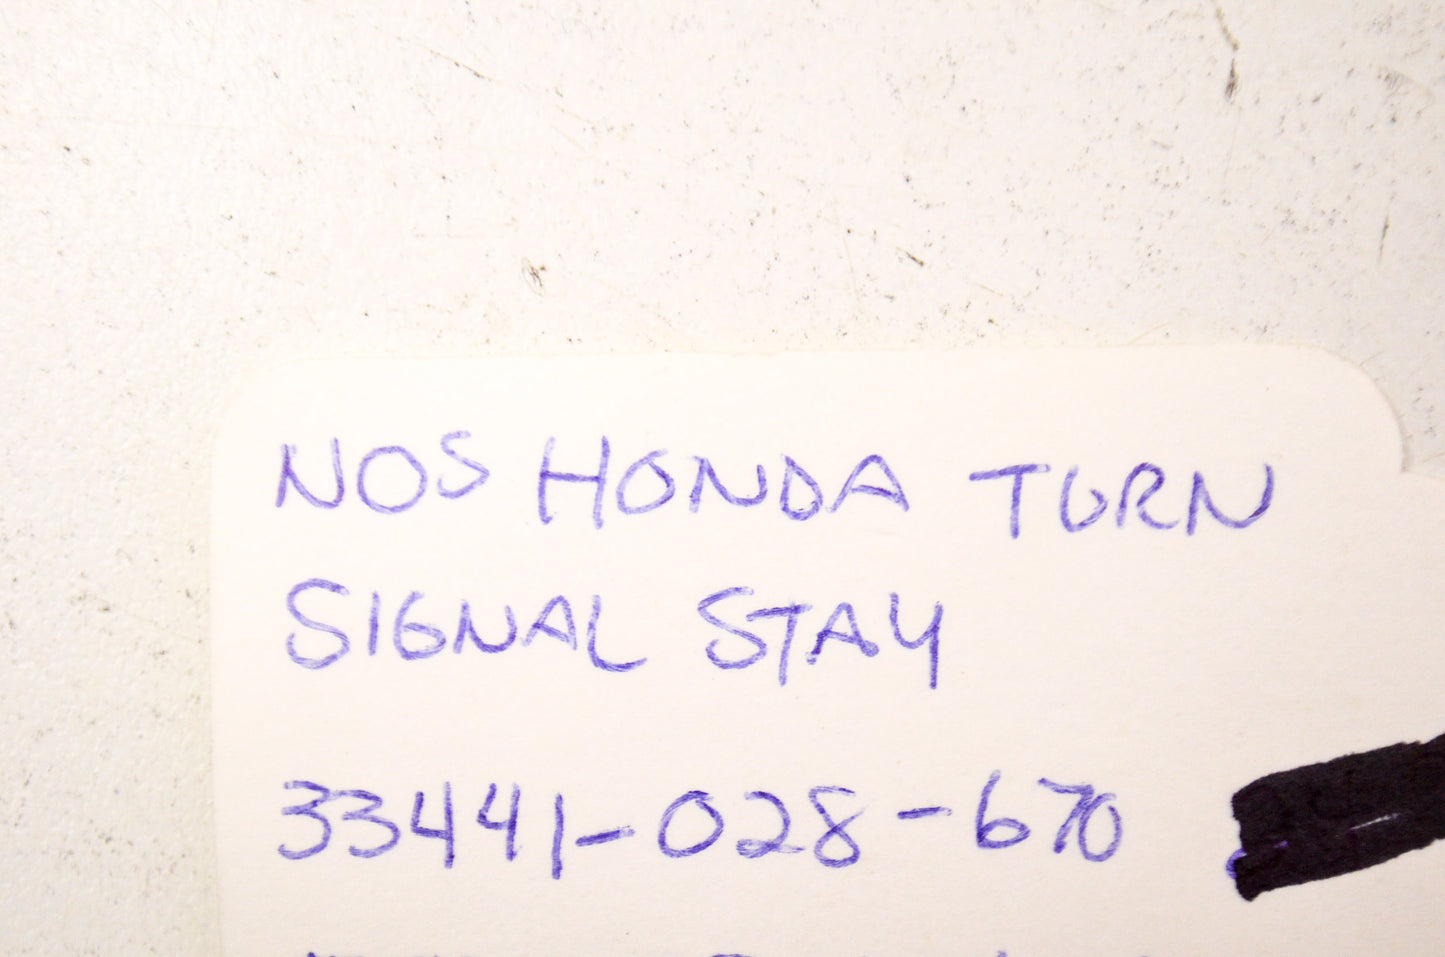 NOS HONDA TURN
SIGNAL STAY
33441-028-670